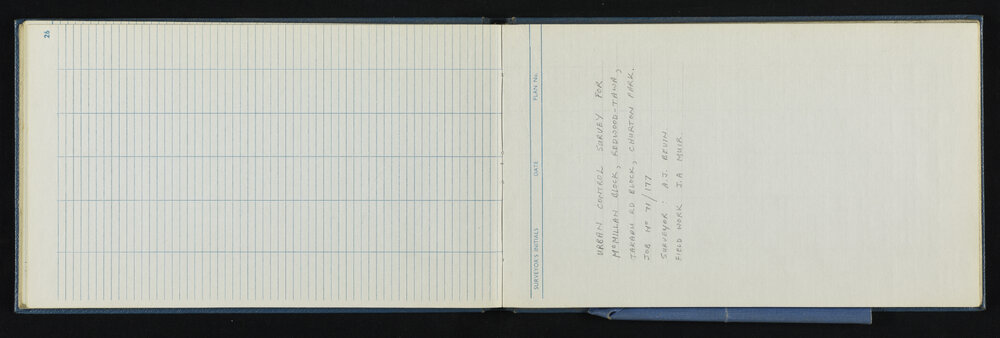 26
SURVEYOR'S INITIALS DATE PLAN No.
URBAN CONTROL SURVEY FOR
McMILLAN BLOCK, REDWOOD-TAWA,
TAKAPU RD BLOCK, CHURTON PARK.
JOB No 71/177
SURVEYOR : A.J. BEVIN
FIELD WORK J.A MUIR.